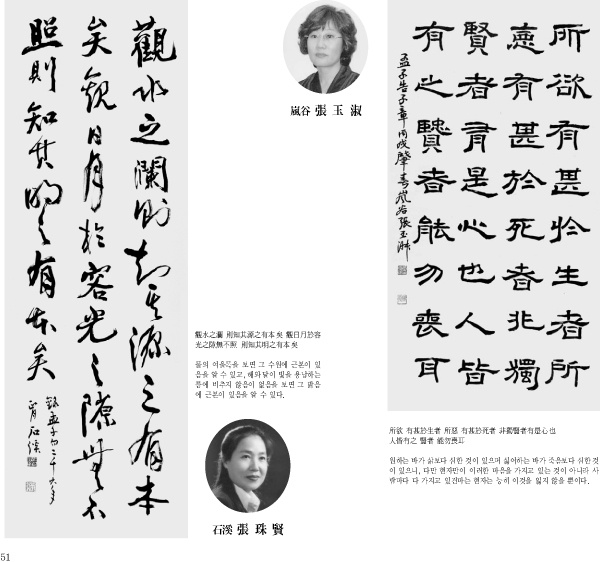 觀水之瀾則知其源之有本
矣觀日月於容光之隙無不
照則知其明之有本矣
嵐谷 張玉淑
觀水之瀾 則知其源之有本矣 觀日月於容
光之隙無不照 則知其明之有本矣
물의 여울목을 보면 그 수원에 근본이 있
음을 알 수 있고, 해와 달이 빛을 용납하는
틈에 비추지 않음이 없음을 보면 그 밝음
에 근본이 있음을 알 수 있다.
石溪 張珠賢
所欲有甚於生者所
惡有甚於死者非獨
賢者有是心也人皆
有之賢者能勿喪耳
孟子告子章 丙戌肇春 嵐谷張玉淑
所欲 有甚於生者 所惡 有甚於死者 非獨賢者有是心也
人皆有之 賢者 能勿喪耳
원하는 바가 삶보다 심한 것이 있으며 싫어하는 바가 죽음보다 심한 것
이 있으니, 다만 현자만이 이러한 마음을 가지고 있는 것이 아니라 사
람마다 다 가지고 있건마는 현자는 능히 이것을 잃지 않을 뿐이다.
51